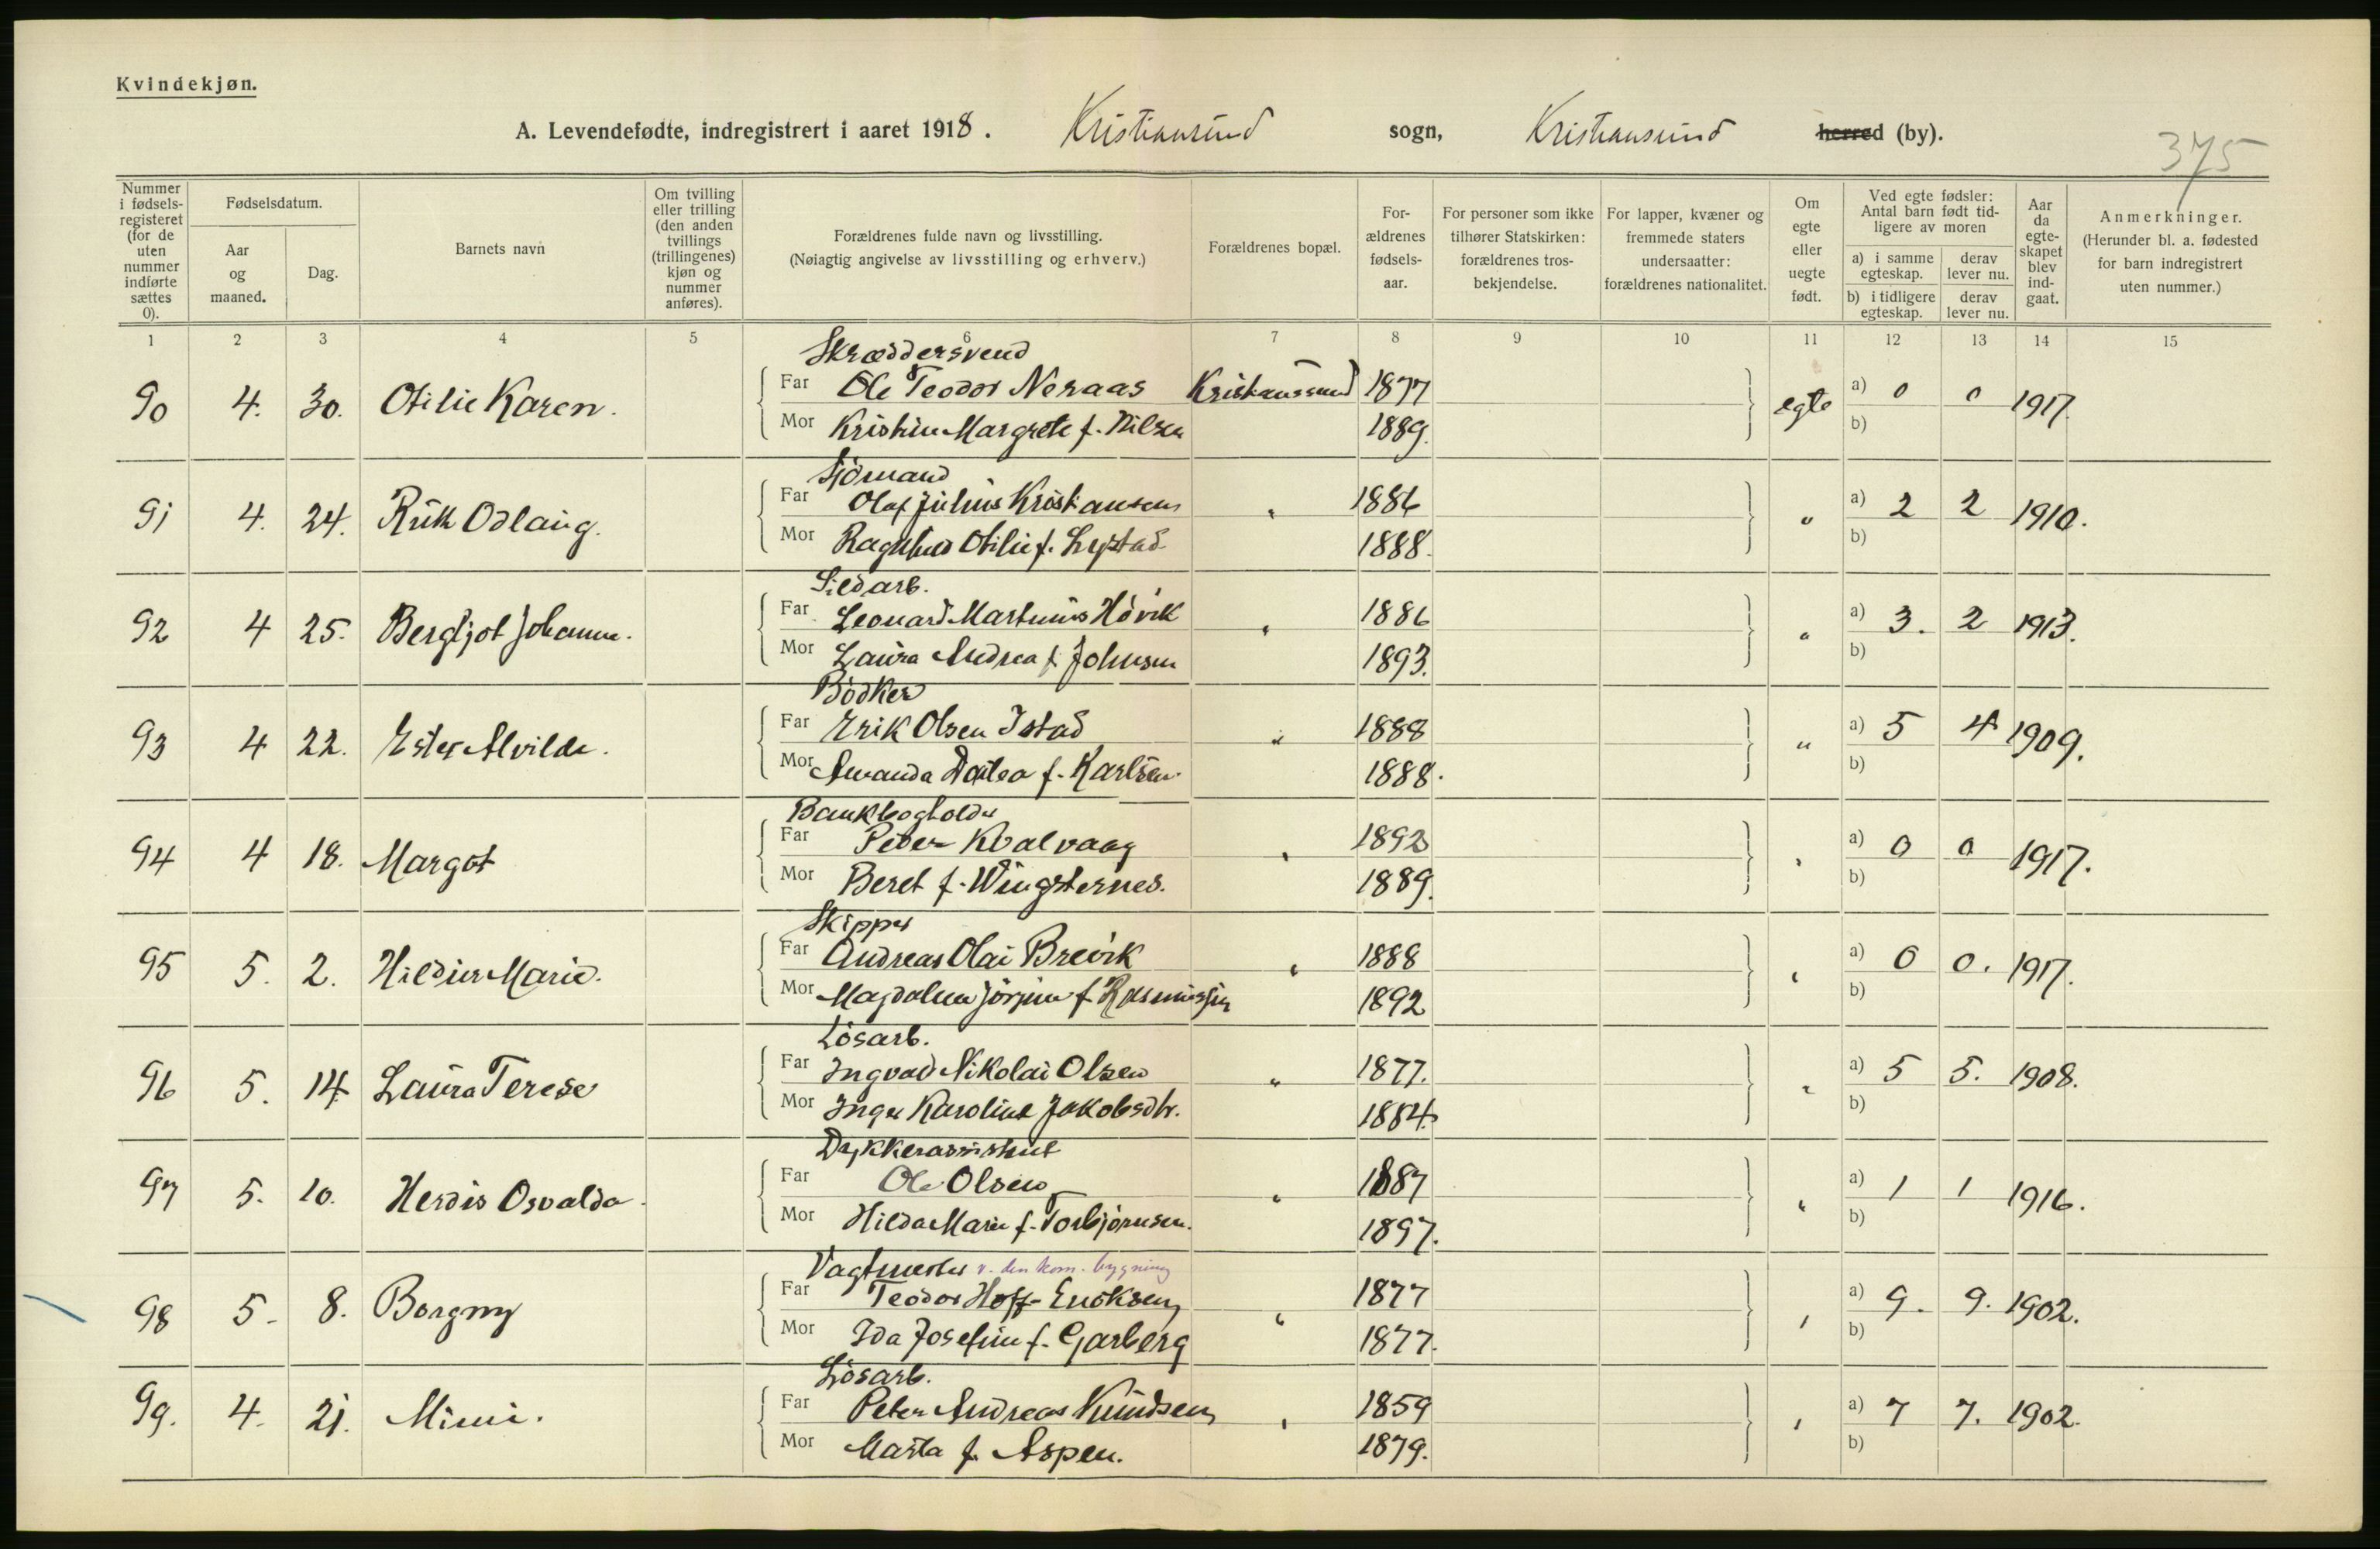 Kvindekjøn.
A. Levendefødte, indregistrert i aaret 1918. Kristiansund sogn, Kristiansund herred (by).
375
Nummer i fødsels-registeret (for de uten nummer indførte sættes 0).
Fødselsdatum.
Aar og maaned.
Dag.
Barnets navn
Om tvilling eller trilling (den anden tvillings (trillingenes) kjøn og nummer anføres).
Forældrenes fulde navn og livsstilling.
(Nøiagtig angivelse av livsstilling og erhverv.)
Forældrenes bopæl.
For-ældrenes fødsels-aar.
For personer som ikke tilhører Statskirken: forældrenes tros-bekjendelse.
For lapper, kvæner og fremmede staters undersaatter: forældrenes nationalitet.
Om egte eller uegte født.
Ved egte fødsler: Antal barn født tid-ligere av moren
a) i samme egteskap. derav lever nu.
b) i tidligere egteskap. derav lever nu.
Aar da egte-skapet blev ind-gaat.
Anmerkninger.
(Herunder bl. a. fødested for barn indregistrert uten nummer.)
1 2 3 4 5 6 7 8 9 10 11 12 13 14 15
Skræddersvend
90 4. 30. Otilie Karen. Far Ole Teodor Neraas Kristiansund 1877 egte a) 0 0 1917.
Mor Kristine Margrete f. Nilsen 1889. b)
Sjömand
91 4. 24. Ruth Odlaug. Far Olaf Julius Kristiansen " 1886 " a) 2 2 1910.
Mor Ragnhild Otilie f. Systad 1888. b)
Sildarb.
92 4 25. Bergljot Johanne. Far Leonard Martinus Hövik " 1886 " a) 3. 2 1913.
Mor Laura Andrea f. Johnsen 1893. b)
Bödker
93 4 22. Ester Alvilde. Far Erik Olsen Istad " 1888 " a) 5 4 1909.
Mor Amanda Datea f. Karlsen. 1888. b)
Bankbogholder
94 4 18. Margot Far Peder Kvalvaag " 1892 " a) 0 0 1917.
Mor Beret f. Wingsternes. 1889. b)
Skipper
95 5. 2. Hildur Marie. Far Andreas Olai Brevik " 1888 " a) 0 0. 1917.
Mor Magdalena Jörgine f. Rasmussen 1892 b)
Lösarb.
96 5. 14. Laura Terese Far Ingvad Nikolai Olsen " 1877. " a) 5 5. 1908.
Mor Inger Karoline Jakobsdtr. 1884. b)
Dykkerassistent
97 5. 10. Herdis Osvalda. Far Ole Olsen " 1887 " a) 1 1 1916.
Mor Hilda Marie f. Torbjörnsen. 1897. b)
Vagtmester v. den kom. bygning
98 5. 8. Borgny Far Teodor Hoff-Eriksen " 1877 " a) 9. 9. 1902.
Mor Ida Josefine f. Garberg 1877. b)
Lösarb.
99. 4. 21. Mimi. Far Peter Andreas Knudsen " 1859 " a) 7 7. 1902.
Mor Marta f. Aspen. 1879. b)